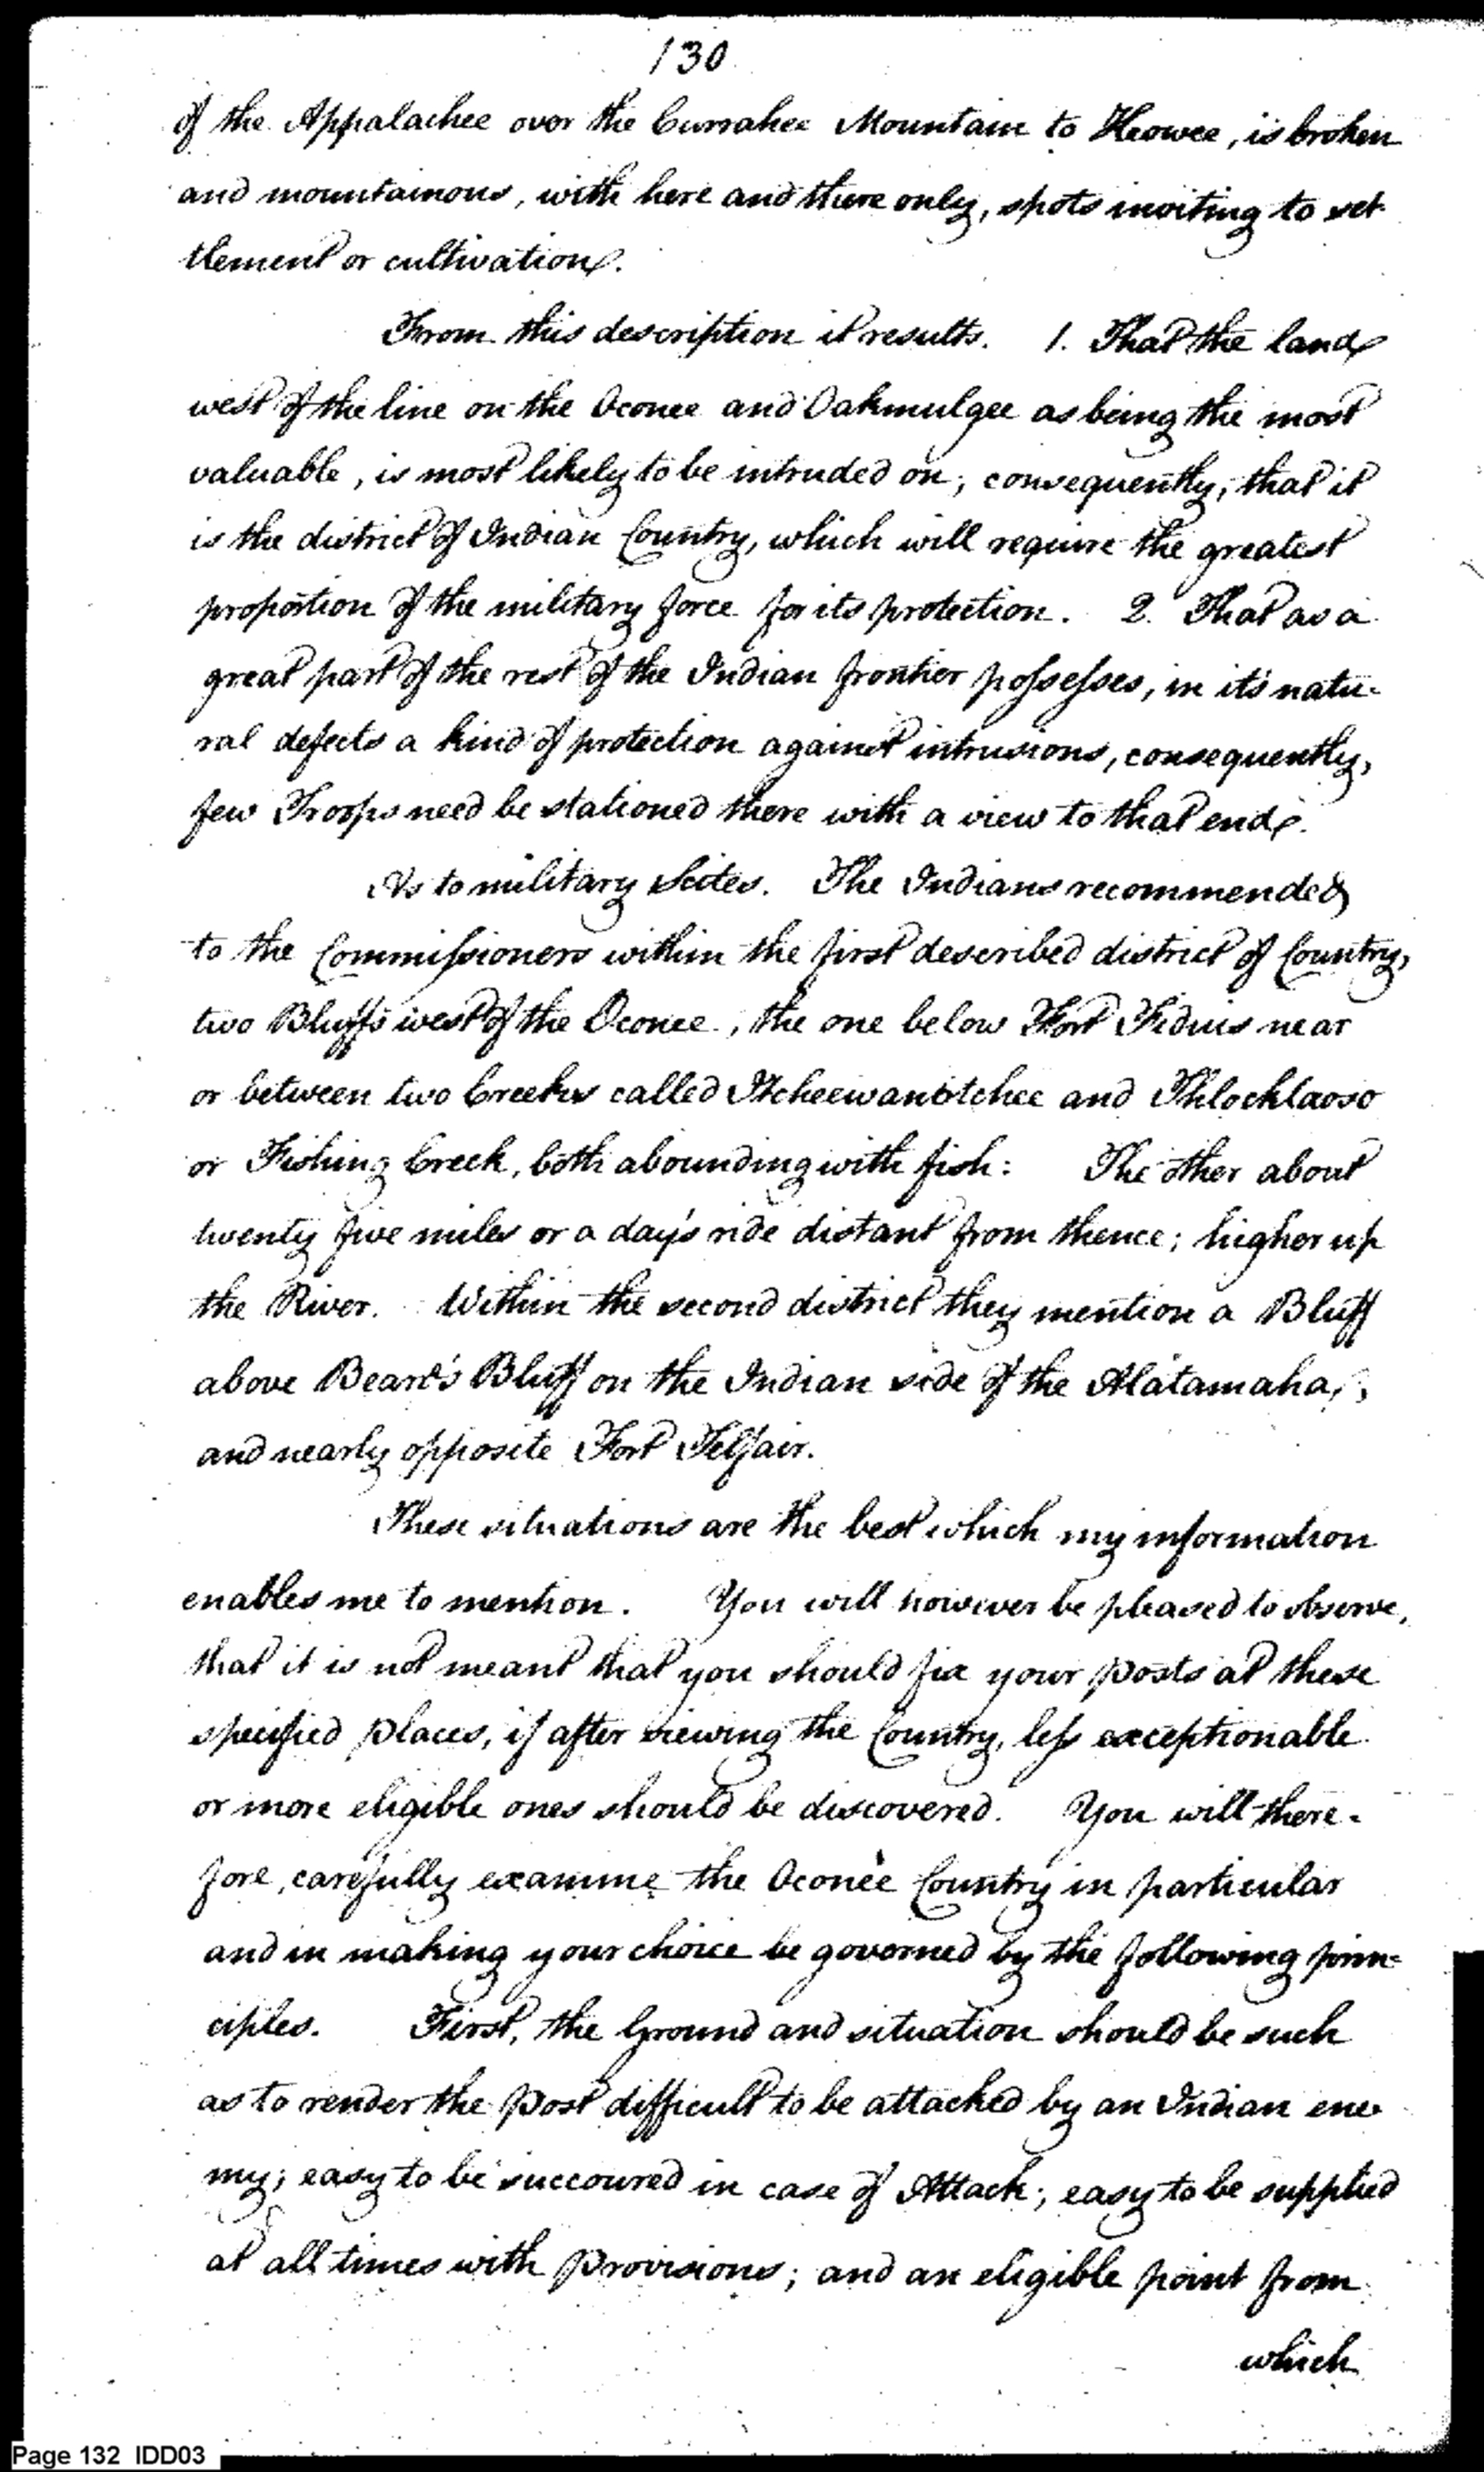 130
of the Appalachee over the Currahee Mountain to Keowee, is broken
and mountainous, with here and there only, spots inviting to set-
tlement or cultivation.
From this description it results. 1. That the land
west of the line on the Oconee and Oakmulgee as being the most
valuable, is most likely to be intruded on; consequently, that it
is the district of Indian Country, which will require the greatest
proportion of the military force for its protection. 2. That as a
great part of the rest of the Indian frontier possesses, in its natu-
ral defects a kind of protection against intrusions, consequently,
few Troops need be stationed there with a view to that end.
As to military Scites. The Indians recommended
to the Commissioners within the first described district of Country,
two Bluffs west of the Oconee, the one below Fort Fidius near
or between two Creeks called Itcheewanotchee and Thlocklaoso
or Fishing Creek, both abounding with fish: The other about
twenty five miles or a day's ride distant from thence; higher up
the River. Within the second district they mention a Bluff
above Beard's Bluff on the Indian side of the Alatamaha,
and nearly opposite Fort Telfair.
These situations are the best which my information
enables me to mention. You will however be pleased to observe,
that it is not meant that you should fix your posts at these
specified places, if after viewing the Country, less exceptionable
or more eligible ones should be discovered. You will there-
fore, carefully examine the Oconee Country in particular
and in making your choice be governed by the following prin-
ciples. First, the Ground and situation should be such
as to render the post difficult to be attacked by an Indian ene-
my; easy to be succoured in case of Attack; easy to be supplied
at all times with provisions; and an eligible point from
which
Page 132 IDD03